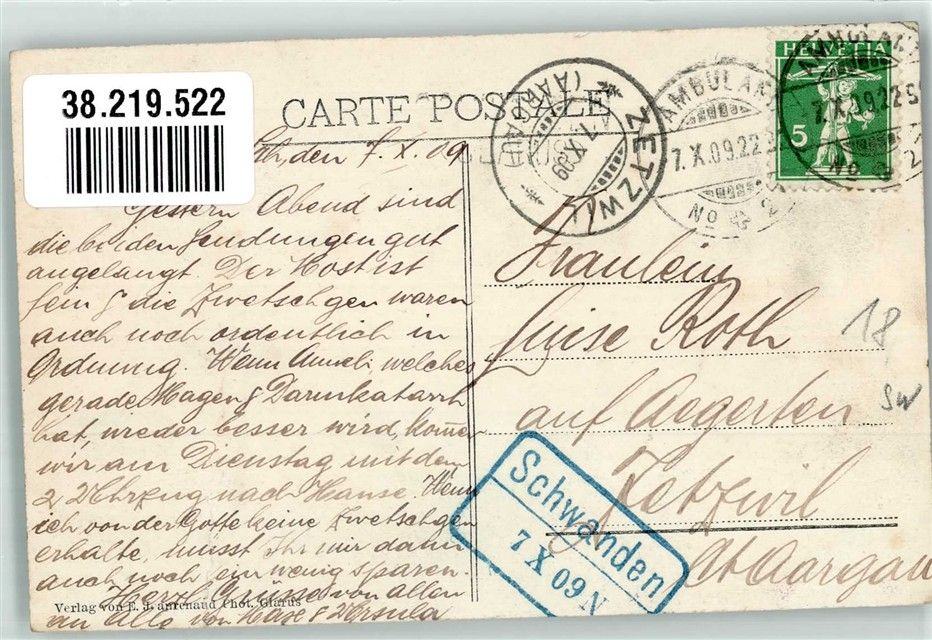 38.219.522
CARTE POSTALE
den 7. X. 09.
Gestern Abend sind
die beiden Sendungen gut
angelangt. Der Most ist
fein & die Zwetschgen waren
auch noch ordentlich in
Ordnung. Wenn welches
gerade Magen & Darmkatarrh
hat, wieder besser wird, kommen
wir am Dienstag mit dem
2 Uhrzug nach Hause. Wenn
ich von der Gotte keine Zwetschgen
erhalte, müsst Ihr mir dann
auch noch ein wenig sparen.
Herzl. Grüsse von allen
an Alle von & Ursula
Verlag von E. Phot. Glarus
ZETZWIL
(AARGAU)
7. X. 09
AMBULANT
7. X. 09. 22
No 2
HELVETIA
5
AMBULANT
7. X. 09. 22
No
Fräulein
Luise Roth
auf Aegerten
Zetzwil
Kt Aargau
18
SW
Schwanden
7 X 09 N